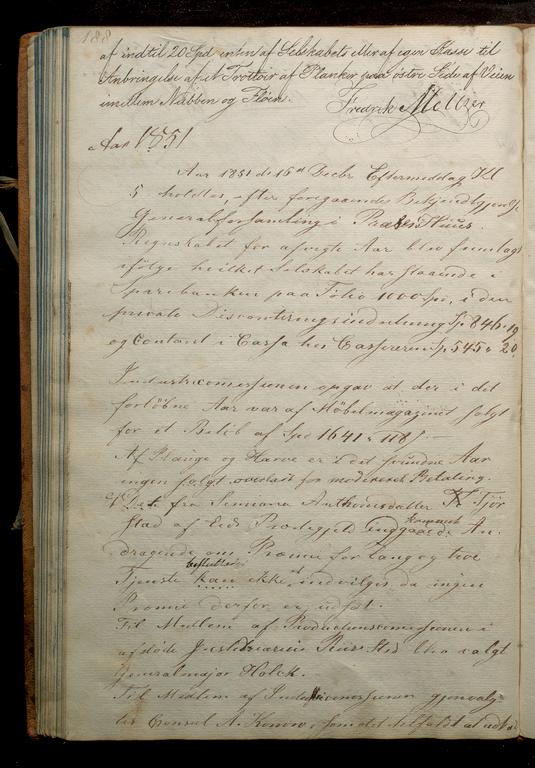 188
af indtil 20 Spd enten af Selskabets eller af egen Kasse til
Anbringelse af et Trottoir af Planker paa østre Side af Veien
imellem Nubben og Fløen.
Fredrik Meltzer
Aar 1851
Aar 1851 d 16 Decbr Eftermiddag Kl
5 holdtes, efter foregaaende Bekjendtgjørelse
Generalforsamling i Huus.
Regnskabet for afvigte Aar blev fremlagt
ifølge hvilket Selskabet har staaende i
Sparebanken paa Folio 1000 Sp, i den
private Disconteringsindretning Sp 846.19
og Contant i Cassa hos Cassereren Sp 545 20.
Industricomissionen opgav at der i det
forløbne Aar var af Möbelmagazinet solgt
for et Beløb af Spd 1641 118
Af Plouge og Harve er i det svundne Aar
ingen solgt overladt for modereret Betaling.
fra
stad af Eids Præstegjeld indgaaede An
kommende
dragende om Præmie for lang og tro
besluttedes
Tjeneste kan ikke indvilges da ingen
Præmie derfor er udsat.
Til Medlem af Productionscomissionen i
afdøde Justitiarius Sted blev valgt
Generalmajor Holck.
Til Medlem af Industricomissionen gjenvalg
tes Consul A. Konow, som det tilfaldt at udtræ